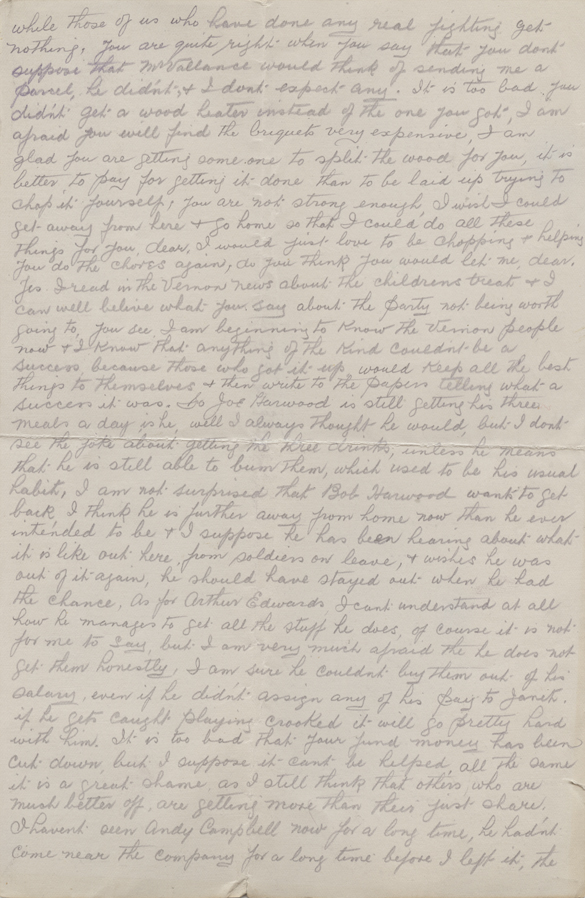 while those of us who have done any real fighting get
nothing. You are quite right when you say that you dont
suppose that Mr Vallance would think of sending me a
parcel, he didn't, & I dont expect any. It is too bad you
didn't get a wood heater instead of the one you got, I am
afraid you will find the briquets very expensive, I am
glad you are getting some one to split the wood for you, it is
better to pay for getting it done than to be laid up trying to
chop it yourself, you are not strong enough, I wish I could
get away from here & go home so that I could do all these
things for you dear, I would just love to be chopping & helping
you do the chores again, do you think you would let me, dear.
Yes I read in the Vernon news about the childrens treat & I
can well belive what you say about the party not being worth
going to, you see I am beginning to know the Vernon people
now & I know that anything of the kind couldnt be a
success, because those who got it up, would keep all the best
things to themselves & then write to the papers telling what a
success it was. So Joe Harwood is still getting his three
meals a day is he, well I always thought he would, but I dont
see the joke about getting the three drinks, unless he means
that he is still able to bum them, which used to be his usual
habit, I am not surprised that Bob Harwood wants to get
back, I think he is further away from home now than he ever
intended to be & I suppose he has been hearing about what
it is like out here, from soldiers on leave, & wishes he was
out of it again, he should have stayed out when he had
the chance, As for Arthur Edwards, I cant understand at all
how he manages to get all the stuff he does, of course it is not
for me to say, but I am very much afraid the he does not
get them honestly, I am sure he couldnt buy them out of his
salary, even if he didn't assign any of his pay to Janet.
if he gets caught playing crooked it will go pretty hard
with him. It is too bad that your fund money has been
cut down, but I suppose it cant be helped, all the same
it is a great shame, as I still think that others, who are
much better off, are getting more than their just share.
I havent seen Andy Campbell now for a long time, he hadn't
come near the company for a long time before I left it, the